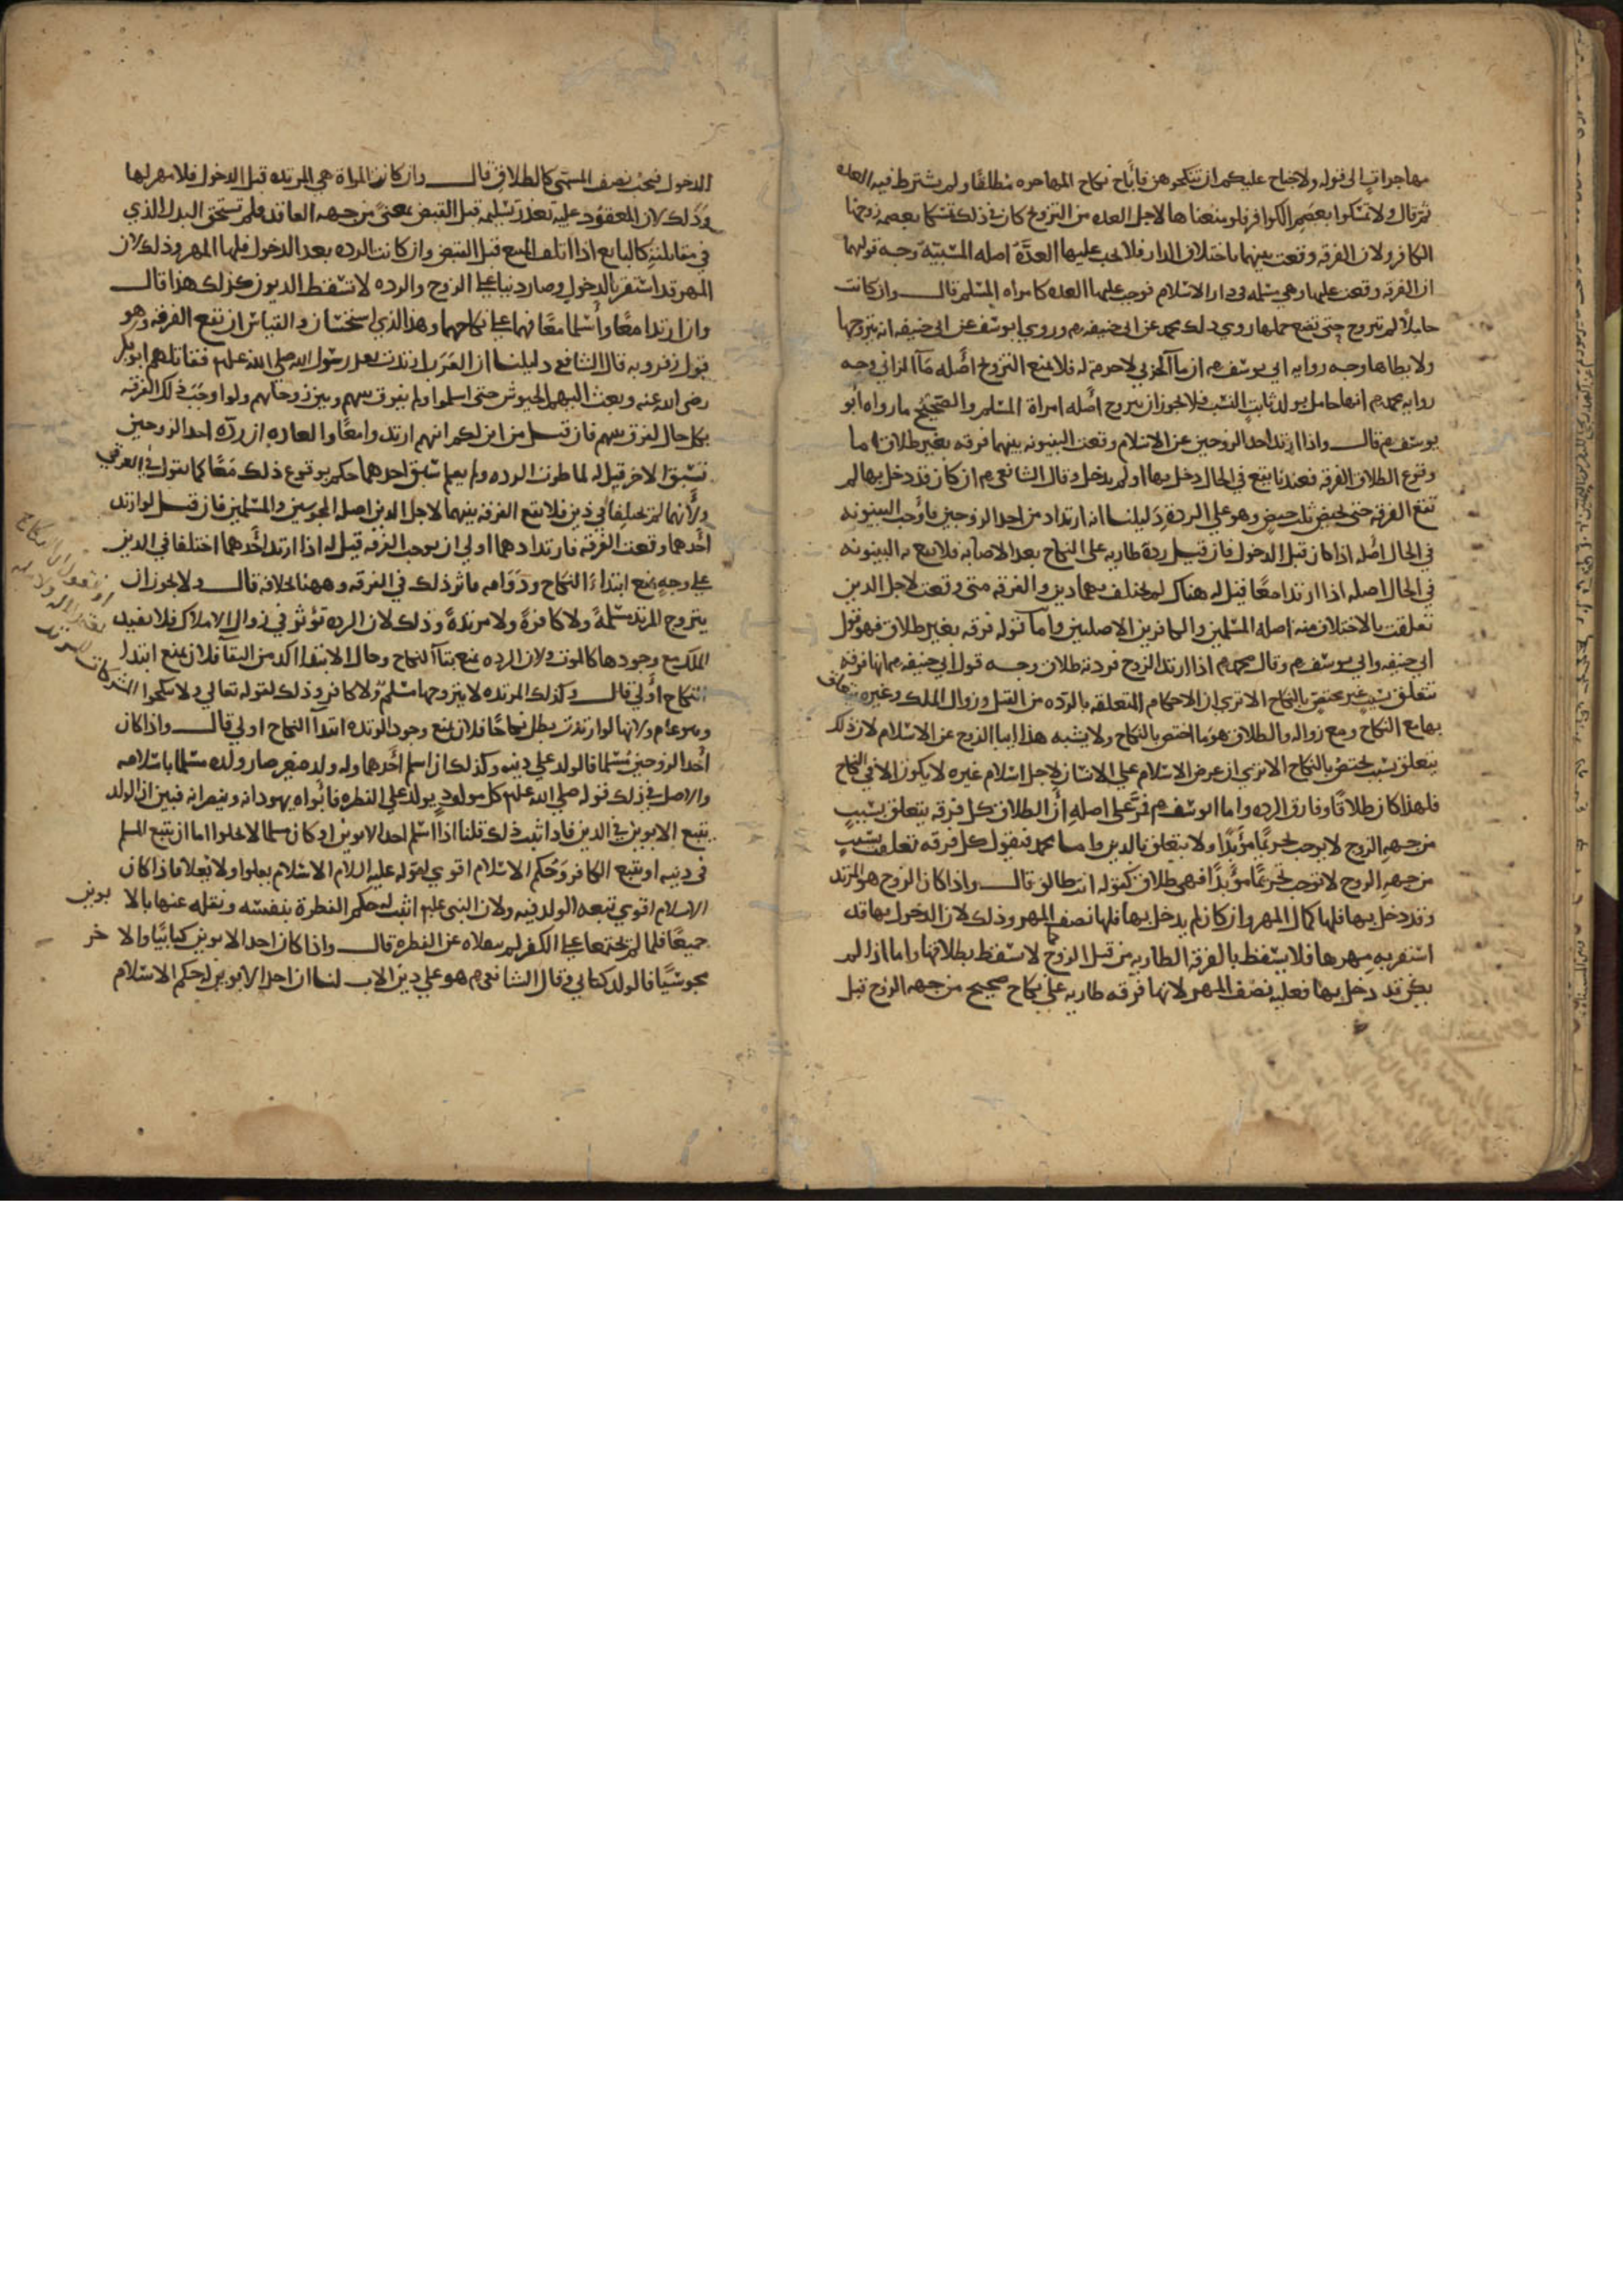 مهاجرات الى قوله ولا جناح عليكم ان تنكحوهن فاباح نكاح المهاجره مطلقا ولم يشترط فيه العده
ثم قال ولا تمسكوا بعصم الكوافر فلو منعناها لاجل العده من التزوج كان في ذلك تمسكا بعصمه زوجها
الكافر ولان الفرقه وقعت بينهما باختلاف الدار فلا يجب عليها العدة اصله المسبيّة وجه قولهما
ان الفرقه وقعت عليها وهي مسلمه في دار الاسلام فوجب عليها العده كامراه المسلم قال وان كانت
حاملا لم تتزوج حتى تضع حملها روي ذلك محمد عن ابي حنيفه رم وروي ابو يوسف عن ابي حنيفه انه يتزوجها
ولا يطاها وجه روايه ابي يوسف رم ان ماء الحربي لا حرمه له فلا يمنع التزوج اصله ماء الزاني وجه
روايه محمد رم انها حامل بولد ثابت النسب فلا يجوز ان تتزوج اصله امراة المسلم والصحيح ما رواه ابو
يوسف رم قال واذا ارتد احد الزوجين عن الاسلام وقعت البينونه بينهما فرقه بغير طلاق اما
وقوع الطلاق الفرقه فعندنا يقع في الحال دخل بها او لم يدخل وقال الشافعي رم ان كان قد دخل بها لم
تقع الفرقه حتى تحيض ثلث حيض وهو على الردة دليلنا انه ارتداد من احد الزوجين فاوجب البينونه
في الحال اصله اذا كان قبل الدخول فان قيل ردة طاريه على النكاح بعد الاصابه فلا يقع به البينونه
في الحال اصله اذا ارتدا معا قيل له هناك لم يختلف بهما دين والفرقه متى وقعت لاجل الدين
تعلقت بالاختلاف منه اصله المسلمين والكافرين الاصليين واما قوله فرقه بغير طلاق فهو قول
ابي حنيفه وابي يوسف رم وقال محمد رم اذا ارتد الزوج فردته طلاق وجه قول ابي حنيفه رم انها فرقه
تتعلق بسبب غير مختص بالنكاح الا تري ان الاحكام المتعلقه بالرده من القتل وزوال الملك وغيره يتعلق
بها مع النكاح ومع زواله والطلاق هو ما اختص بالنكاح ولا يشبه هذا اباء الزوج عن الاسلام لان ذلك
يتعلق بسبب يختص بالنكاح الا تري ان عرض الاسلام على الانسان لاجل اسلام غيره لا يكون الا في النكاح
فلهذا كان طلاقا وفارق الرده واما ابو يوسف رم فمرّ على اصله ان الطلاق كل فرقه يتعلق بسبب
من جهه الزوج لا يوجب تحريما مؤبدا ولا يتعلق بالدين واما محمد فيقول كل فرقه تعلقت بسبب
من جهه الزوج لا توجب تحريما مؤبدا فهي طلاق كقوله انت طالق قال واذا كان الزوج هو المرتد
وقد دخل بها فلها كمال المهر وان كان لم يدخل بها فلها نصف المهر وذلك لان الدخول بها قد
استقر به مهرها فلا يسقط بالفرقه الطاريه من قبل الزوج كما لا يسقط بطلاقها واما اذا لم
يكن قد دخل بها فعليه نصف المهر لانها فرقه طاريه على نكاح صحيح من جهه الزوج قبل
الدخول فيجب نصف المسمى كالطلاق قال وان كانت المراة هي المرتده قبل الدخول فلا مهر لها
وذلك لان المعقود عليه تعذر تسليمه قبل القبض بمعنى من جهه العاقد فلم تستحق البدل الذي
في مقابلته كالبايع اذا اتلف المبيع قبل القبض وان كانت الرده بعد الدخول فلها المهر وذلك لان
المهر قد استقر بالدخول وصار دينا على الزوج والرده لا تسقط الديون كذلك هذا قال
وان ارتدا معا واسلما معا فهما على نكاحهما وهذا الذي استحسان والقياس ان تقع الفرقه وهو
قول زفر وبه قال الشافعي دليلنا ان العرب ارتدت بعد رسول الله صلى الله عليه فقاتلهم ابو بكر
رضي الله عنه وبعث اليهم الجيوش حتى اسلموا ولم يفرق بينهم وبين زوجاتهم ولو اوجب ذلك الفرقه
بكل حال لفرق بينهم فان قيل من اين لكم انهم ارتدوا معا والعاده ان ردّه احد الزوجين
تسبق الاخر قيل له لما طرت الرده ولم يعلم سبق احدهما حكم بوقوع ذلك معا كما نقول في الغرقى
ولانهما لم يختلفا في دين فلا تقع الفرقه بينهما لاجل الدين اصله المجوسيين والمسلمين فان قيل لو ارتد
احدهما وقعت الفرقه فارتدادهما اولى ان يوجب الفرقه قيل له اذا ارتد احدهما اختلفا في الدين
على وجه يمنع ابتداء النكاح ودوامه فاثر ذلك في الفرقه وههنا بخلافه قال ولا يجوز ان
يتزوج المرتد مسلمة ولا كافرة ولا مرتدة وذلك لان الرده تؤثر في زوال الاملاك فلا يفيد
الملك مع وجودها كالموت ولان الرده تمنع بقاء النكاح وحال الابتدا اكد من البقا فلان يمنع ابتدا
النكاح اولى قال وكذلك المرتده لا يتزوجها مسلم ولا كافر وذلك لقوله تعالي ولا تنكحوا المشركات
وهو عام ولانها لو ارتدت بطل نكاحها فلان يمنع وجود الرده ابتدا النكاح اولي قال واذا كان
احد الزوجين مسلما فالولد على دينه وكذلك ان اسلم احدهما وله ولد صغير صار ولده مسلما باسلامه
والاصل في ذلك قوله صلى الله عليه كل مولود يولد على الفطره فابواه يهودانه وينصرانه فبين ان الولد
يتبع الابوين في الدين فاذا ثبت ذلك قلنا اذا اسلم احد الابوين او كان مسلما لا يخلوا اما ان يتبع المسلم
في دينه او يتبع الكافر وحكم الاسلام اقوي لقوله عليه السلام الاسلام يعلوا ولا يعلا فاذا كان
الاسلام اقوي تبعه الولد فيه ولان النبي عليه اثبت له حكم الفطرة بنفسه ونقله عنها بالابوين
جميعا فلما لم يجتمعا على الكفر لم ينقلاه عن الفطره قال واذا كان احد الابوين كتابيا والاخر
مجوسيا فالولد كتابي وقال الشافعي رم هو على دين الاب لنا ان احد الابوين له حكم الاسلام